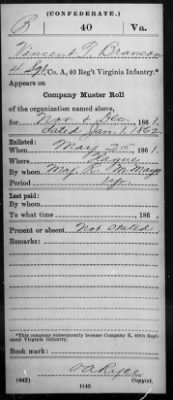 (CONFEDERATE.)
B 40 Va.
Vincent F. Branson
Sgt, Co. A, 40 Reg't Virginia Infantry.*
Appears on
Company Muster Roll
of the organization named above,
for Nov & Dec, 1861.
dated Jan. 1, 1862
Enlisted:
When May 25, 1861.
Where Hague
By whom Maj. R. M. Mayo
Period
Last paid:
By whom
To what time , 186 .
Present or absent Not stated
Remarks:
*This company subsequently became Company K, 40th Regiment Virginia Infantry.
Book mark:
(642) 1142 Copyist.